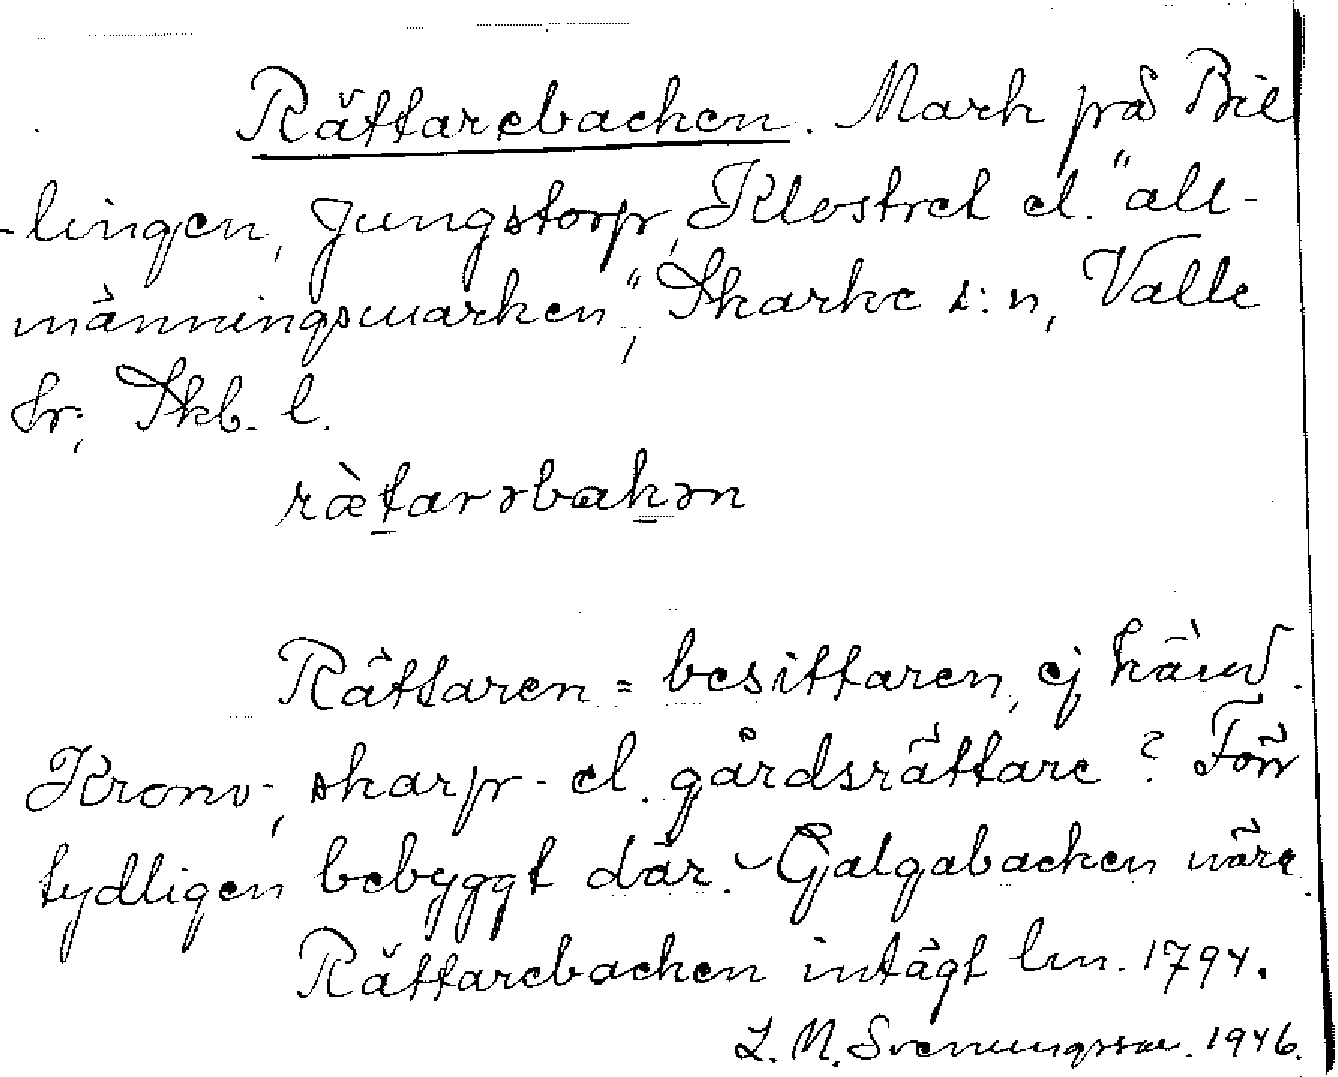 Rättarebacken. Mark på Bil
-lingen, Jungstorp, Klostret el. "all-
männingsmarken", Skarke s:n, Valle
hr; Skb. l.
ræ̀tarəbakən
Rättaren = besittaren, ej känd.
Krono-, skarp- el. gårdsrättare? Förr
tydligen bebyggt där. Galgabacken nära.
Rättarebacken intägt lm. 1794.
L. M. Svenungsson. 1946.